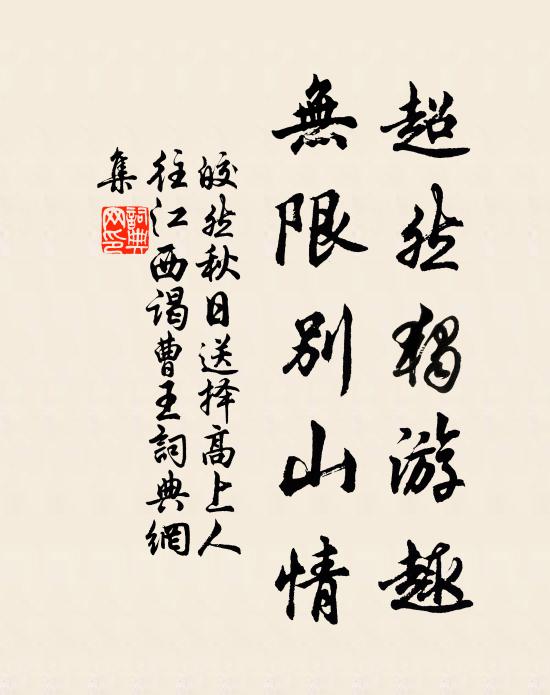 超然獨游趣
無限別山情
皎然秋日送择高上人
往江西谒曹王詞典網
集
詞典
网印